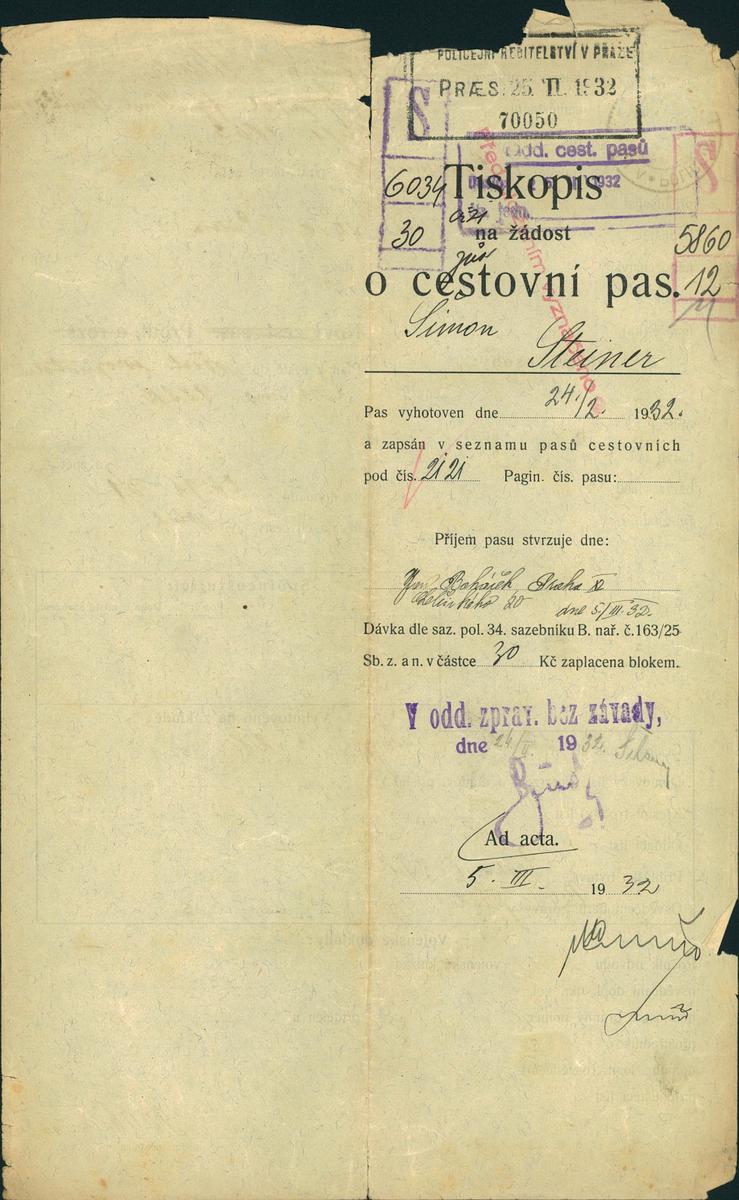 POLICEJNÍ ŘEDITELSTVÍ V PRAZE
PRÆS. 25. II. 1932
70050
Odd. cest. pasů
1932
6034
Tiskopis
30
na žádost
5860
o cestovní pas.
12
Simon
Steiner
Pas vyhotoven dne 24./2. 1932.
a zapsán v seznamu pasů cestovních
pod čís. 2121 Pagin. čís. pasu:
Příjem pasu stvrzuje dne:
Praha XI
20 dne 5/III. 32.
Dávka dle saz. pol. 34. sazebníku B. nař. č. 163/25
Sb. z. a n. v částce 30 Kč zaplacena blokem.
V odd. zprav. bez závady,
dne 24/II. 1932.
Ad acta.
5. III. 1932